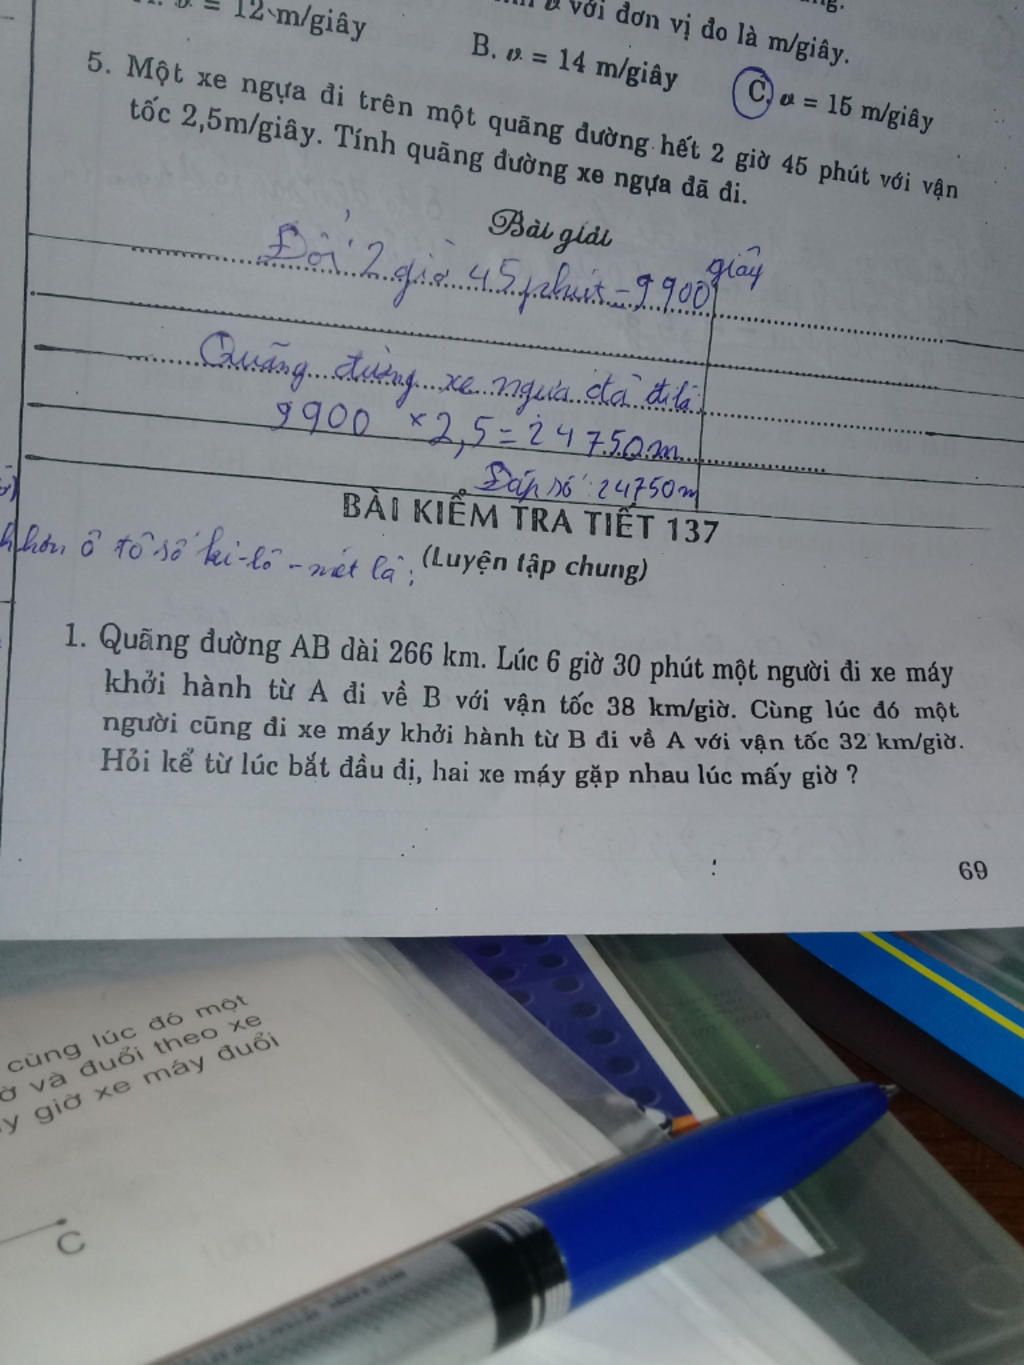 v = 12 m/giây
với đơn vị đo là m/giây.
B. v = 14 m/giây
C. v = 15 m/giây
5. Một xe ngựa đi trên một quãng đường hết 2 giờ 45 phút với vận
tốc 2,5m/giây. Tính quãng đường xe ngựa đã đi.
Bài giải
Đổi 2 giờ 45 phút = 9900 giây
Quãng đường xe ngựa đã đi là
9900 × 2,5 = 24750m
Đáp số : 24750m
BÀI KIỂM TRA TIẾT 137
hơn ô tô số ki-lô-mét là:
(Luyện tập chung)
1. Quãng đường AB dài 266 km. Lúc 6 giờ 30 phút một người đi xe máy
khởi hành từ A đi về B với vận tốc 38 km/giờ. Cùng lúc đó một
người cũng đi xe máy khởi hành từ B đi về A với vận tốc 32 km/giờ.
Hỏi kể từ lúc bắt đầu đi, hai xe máy gặp nhau lúc mấy giờ ?
69
cùng lúc đó một
và đuổi theo xe
giờ xe máy đuổi
C